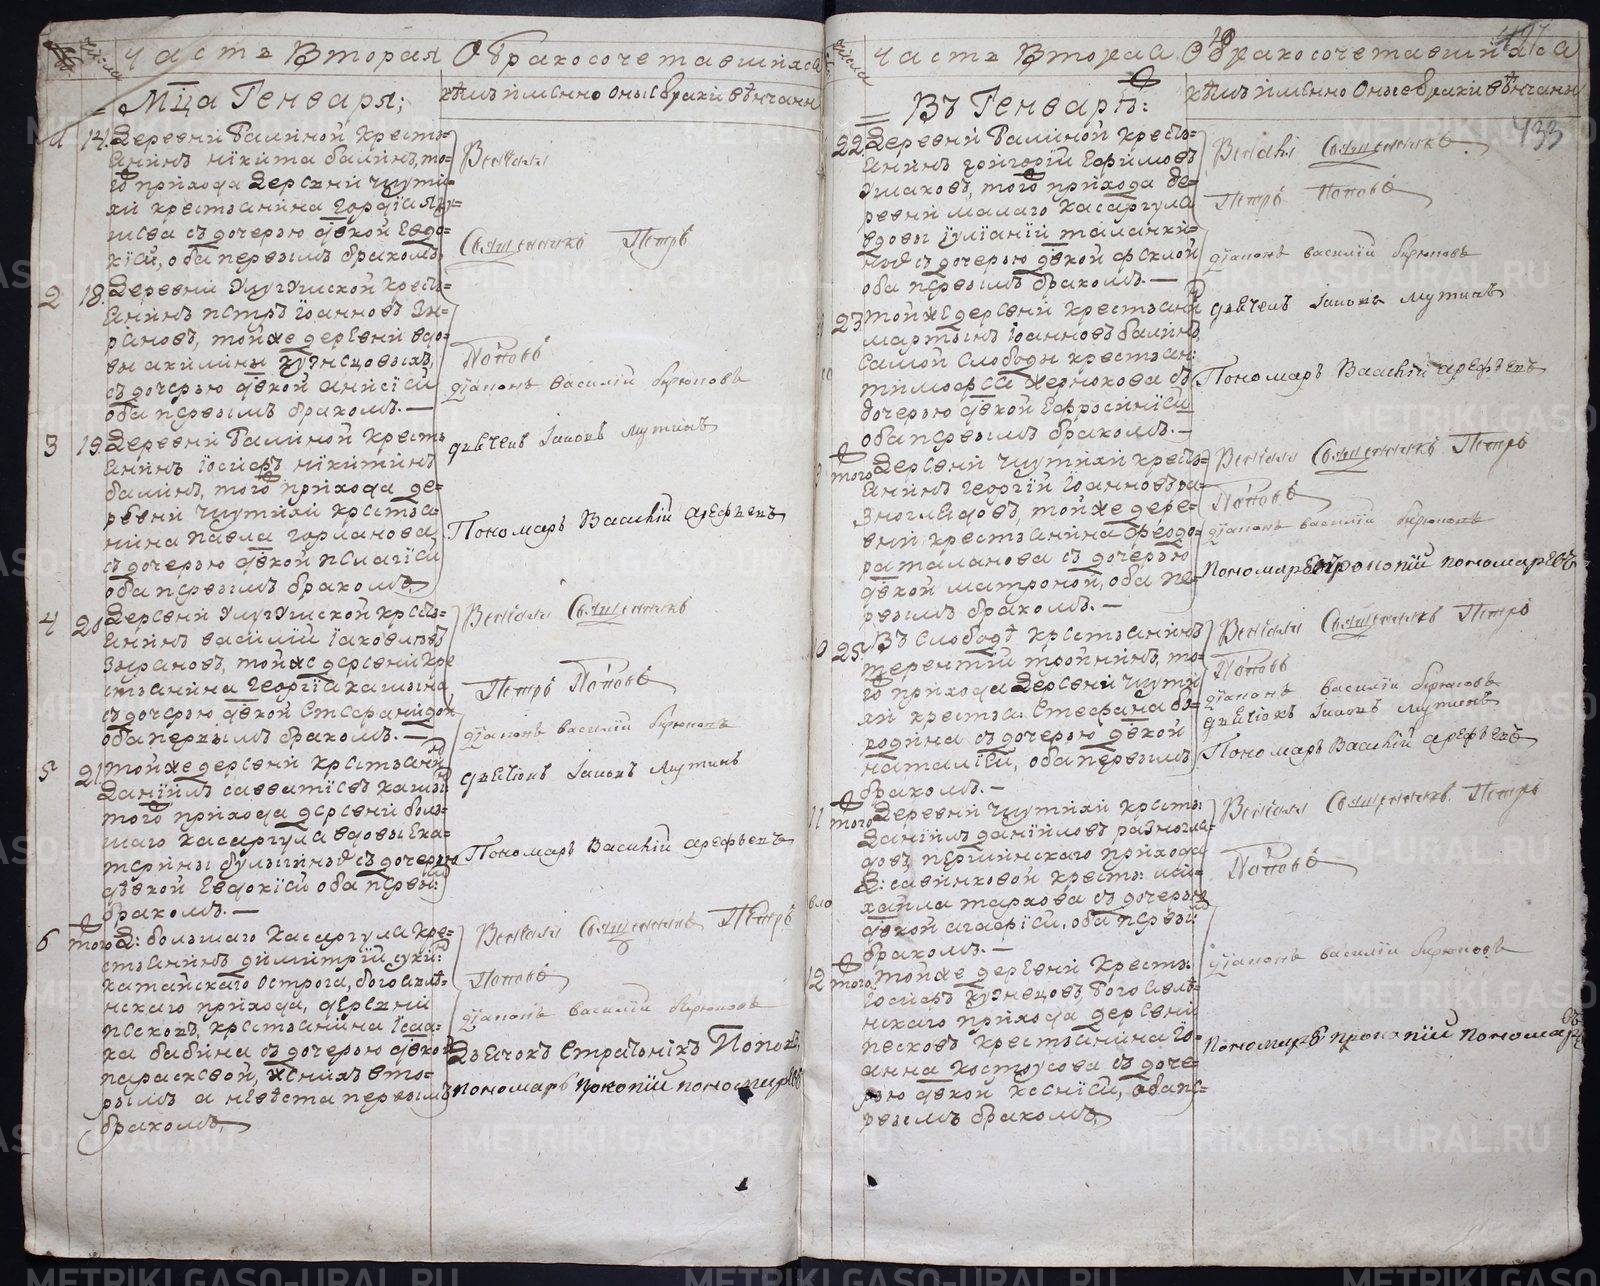 Часть Вторая О бракосочетавшихся
числа
Мца Генваря;
кѣмъ имянно оные браки вѣнчаны
14. Деревни Балиной кресть=
янинъ никита балинъ, то=
го прихода деревни чюти=
хи крестьянина гордѣя
съ дочерью дѣвкой Евдо=
кіей, оба первымъ бракомъ,
Венчалъ
Священникъ Петръ
2 18. Деревни кресть=
янинъ петръ Іоанновъ Зы=
рановъ, тойже деревни вдо=
вы акилины кузнецовыхъ,
съ дочерью дѣвкой анисіей
оба первымъ бракомъ. —
Поповъ
діаконъ василій бирюковъ
3 19. Деревни Балиной кресть
янинъ Іосифъ никитинъ
балинъ, того прихода де=
ревни чютихи крестья=
нина павла горланова
съ дочерью дѣвкой пелагіей
оба первымъ бракомъ,
дьячекъ Іаковъ мутинъ
Пономарь Василій арефьевъ
4 20 Деревни кресть=
янинъ василій Іаковлевъ
Зырановъ, тойже деревни кре
стьянина Георгія кашина,
съ дочерью дѣвкой Стефанидой
оба первымъ бракомъ. —
Венчалъ Священникъ
Петръ Поповъ
діаконъ василій бирюковъ
5 21. тойже деревни крестьяни
Даніилъ савватіевъ
того прихода деревни боль=
шаго касаргула вдовы Ека=
терины булыгиныхъ съ дочерью
дѣвкой Евдокіей оба первы:
бракомъ. —
дьячекъ Іаковъ Мутинъ
Пономарь Василій арефьевъ
6 того Д: большаго касаргула кре=
стьянинъ димитрій
катайскаго острога, богоявле=
нскаго прихода, деревни
песковъ, крестьянина Ісаа=
ка бабина съ дочерью дѣвкой
параскевой, женихъ вто=
рымъ а невѣста первымъ
бракомъ,
Венчалъ Священникъ Петръ
Поповъ
діаконъ василій бирюковъ
Дьячокъ Стратоникъ Поповъ
пономарь прокопій пономаревъ
Часть Вторая О бракосочетавшихся
числа
Въ Генварѣ:
кѣмъ имянно оные браки вѣнчаны
433
22. Деревни Балиной кресть=
янинъ григорій Ефимовъ
Ушаковъ, того прихода де=
ревни малаго касаргула
вдовы Іуліаніи таланки=
ныхъ съ дочерью дѣвкой феклой
оба первымъ бракомъ. —
Венчалъ Священникъ
Петръ Поповъ
діаконъ василій бирюковъ
23. тойже деревни крестьяни
мартынъ Іоанновъ балинъ,
самой слободы крестьян:
тимофея чернокова съ
дочерью дѣвкой Ефросиніей
оба первымъ бракомъ. —
дьячекъ Іаковъ мутинъ
Пономарь Василій арефьевъ
того Деревни чютихи кресть=
янинъ Георгій Іоанновъ ра=
зноглядовъ, тойже дере=
вни крестьянина феодо=
ра таланова съ дочерью
дѣвкой матроной, оба пе=
рвымъ бракомъ. —
Венчалъ Священникъ Петръ
Поповъ
діаконъ василій бирюковъ
пономарь прокопій пономаревъ
10 25. Въ слободѣ крестьянинъ
терентій тройнинъ, то=
го прихода деревни чюти
хи крестья: Стефана бо=
родина съ дочерью дѣвкой
наталіей, оба первымъ
бракомъ. —
Венчалъ Священникъ Петръ
Поповъ
діаконъ василій бирюковъ
дьячокъ Іаковъ мутинъ
Пономарь Василій арефьевъ
11 того Деревни чютихи кресть:
Даніилъ даніиловъ разногля=
довъ, першинскаго прихода
Д: савинковой кресть: ми=
хаила таркова съ дочерью
дѣвкой агафіей, оба первы:
бракомъ. —
Венчалъ Священникъ Петръ
Поповъ
12 того тойже деревни кресть:
Іосифъ кузнецовъ, богоявле=
нскаго прихода деревни
песковъ крестьянина Іо=
анна костоусова съ доче=
рью дѣвкой ксеніей, оба пе=
рвымъ бракомъ,
діаконъ василій бирюковъ
пономарь прокопій пономаревъ